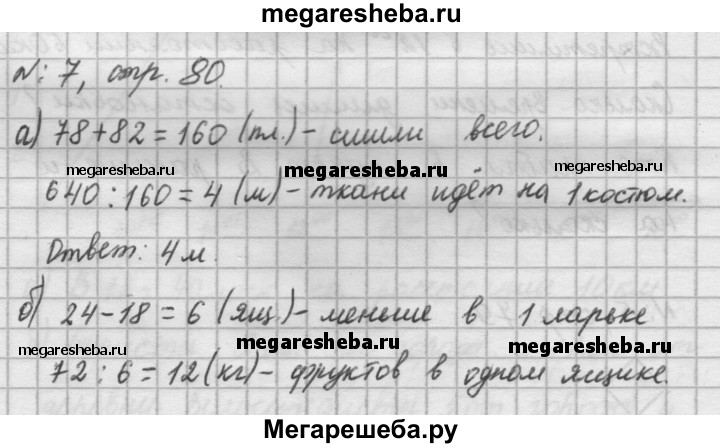 megaresheba.ru
№: 7, стр. 80.
а) 78+82=160 (пл.) - сшили всего.
megaresheba.ru megaresheba.ru megaresheba.ru
640:160=4 (м) - ткани идёт на 1 костюм.
Ответ: 4 м.
б) 24-18=6 (ящ.) - меньше в 1 ларьке
megaresheba.ru megaresheba.ru megaresheba.ru
72:6=12 (кг) - фруктов в одном ящике.
Мегарешеба.ру